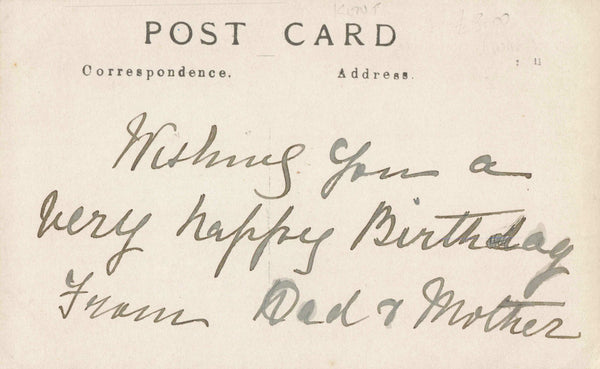 POST CARD
Correspondence. Address.
Wishing you a
very happy Birthday
From Dad & Mother